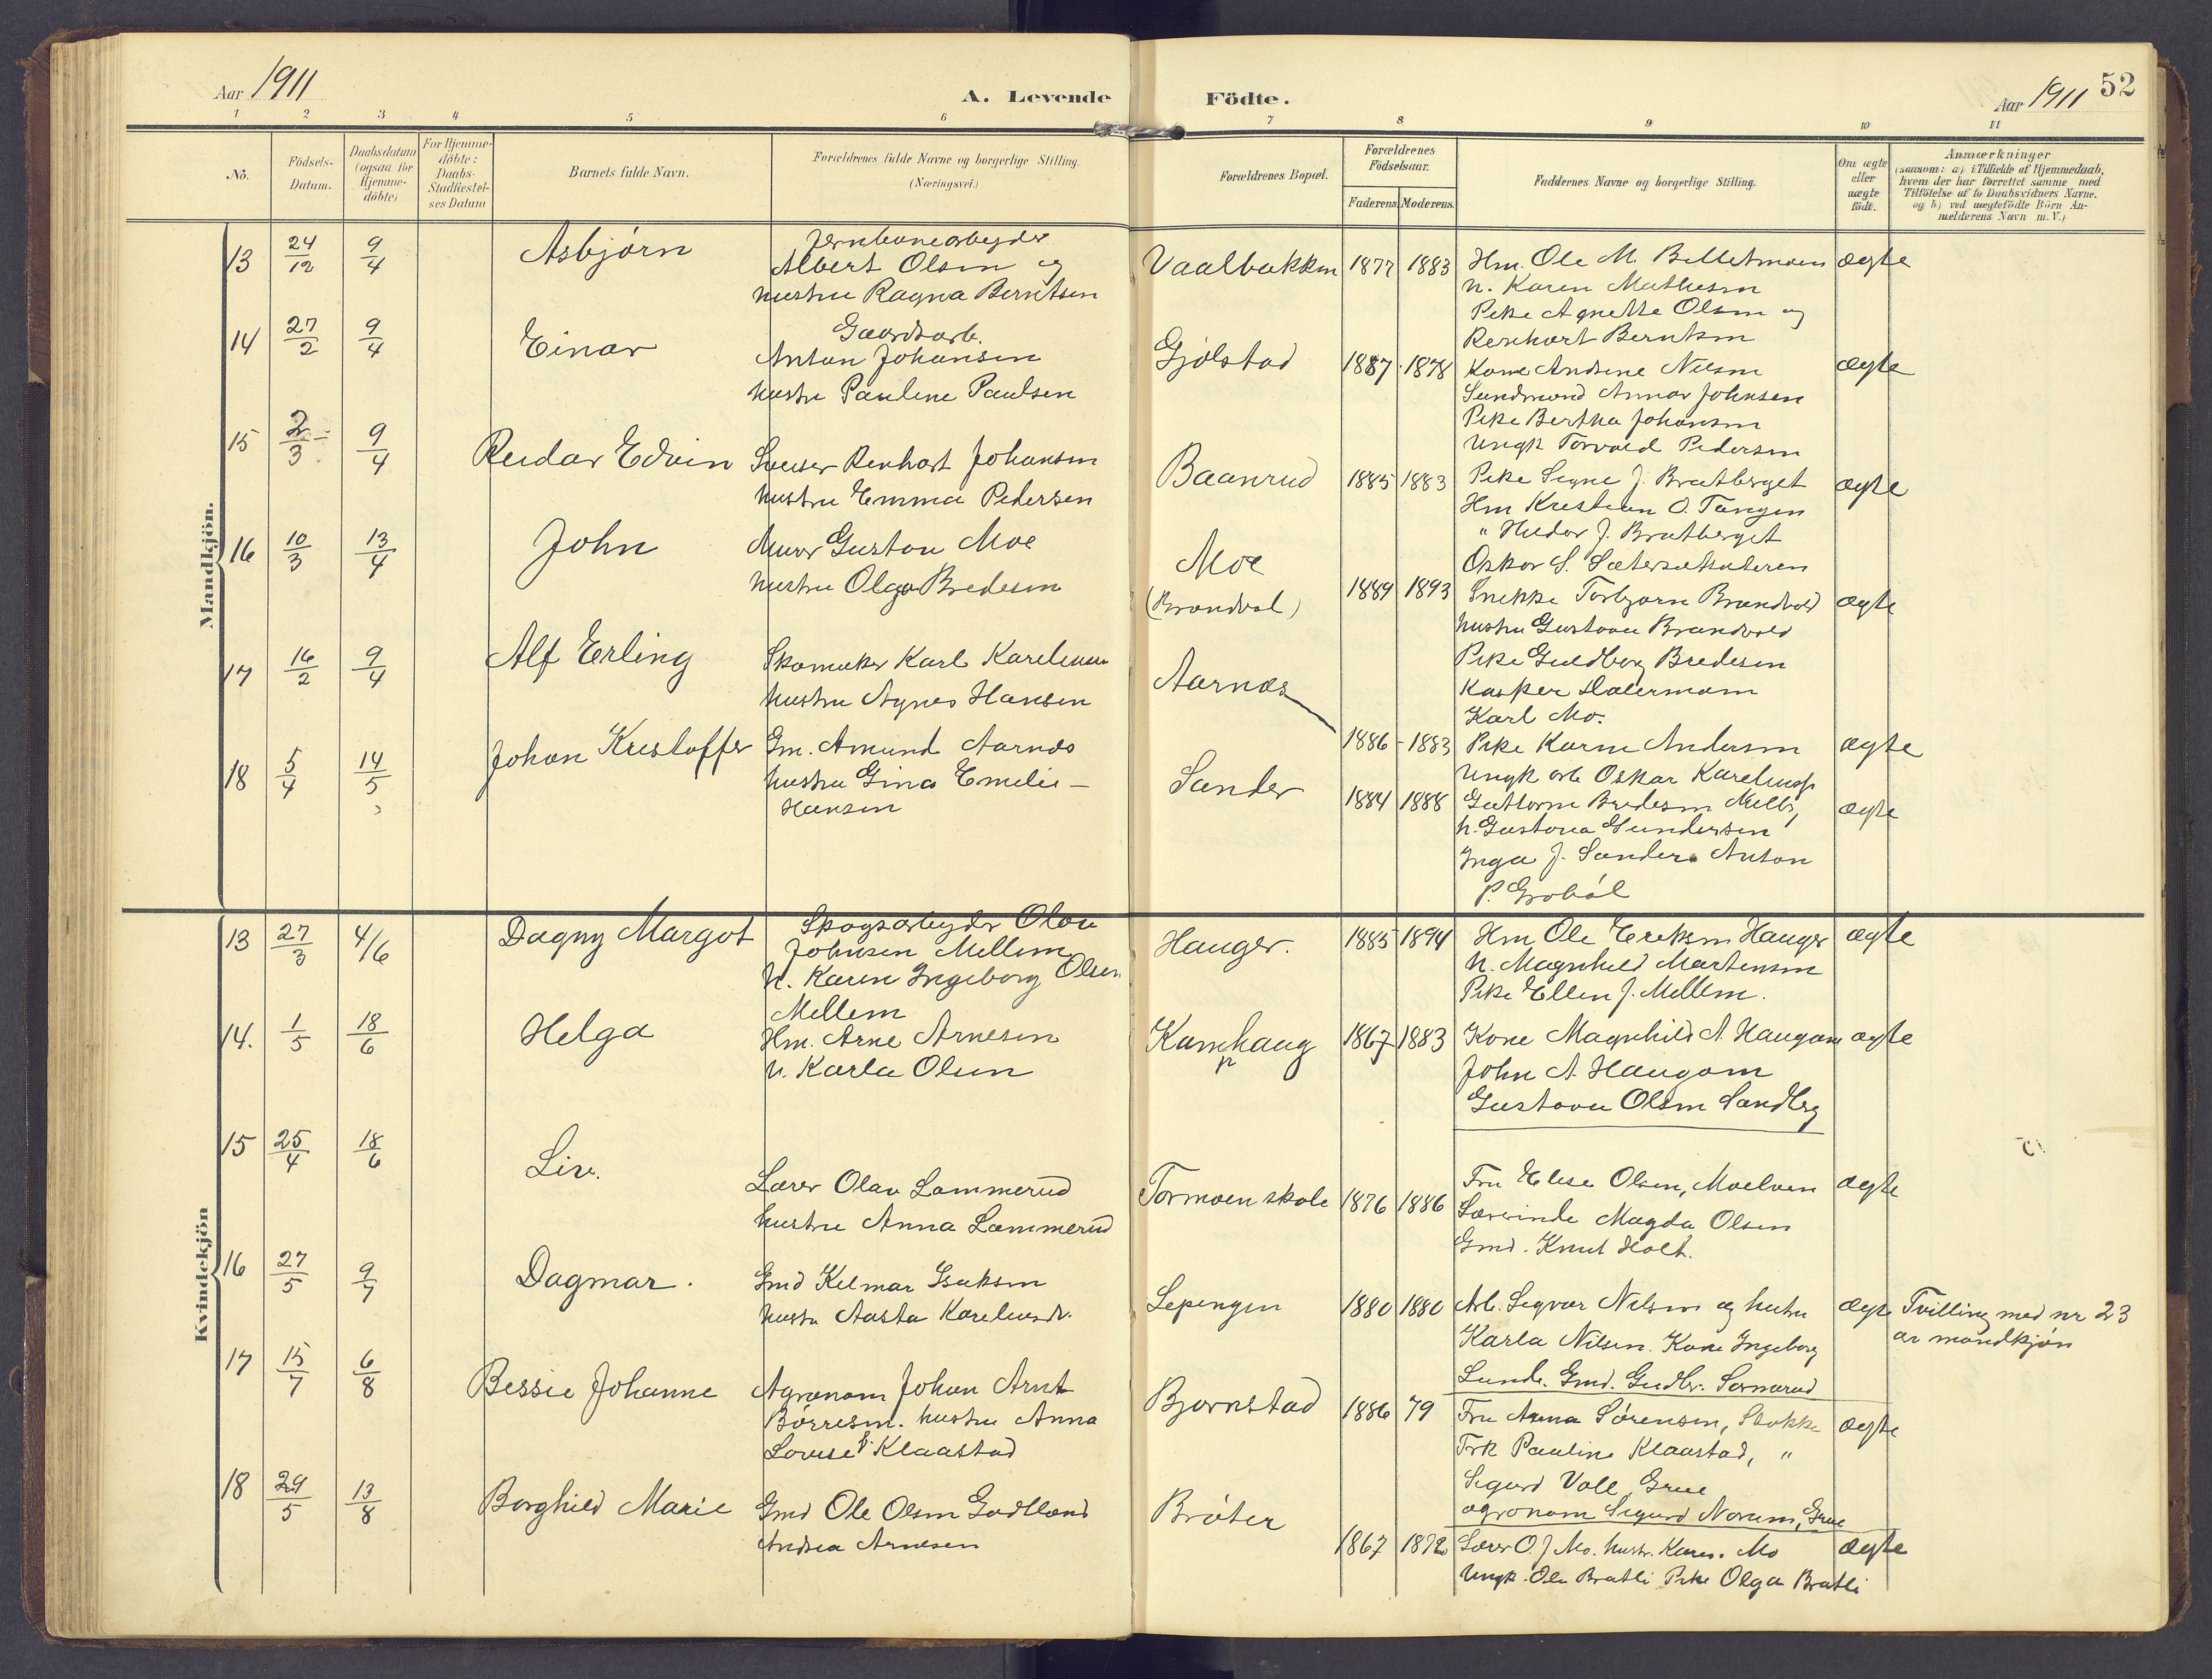 Aar 1911
A. Levende Födte.
Aar 1911 52
1 2 3 4 5 6 7 8 9 10 11
No.
Födsels-Datum.
Daabsdatum (ogsaa for Hjemme-döbte)
For Hjemme-döbte: Daabs-Stadfæstel-ses Datum
Barnets fulde Navn.
Forældrenes fulde Navne og borgerlige Stilling. (Næringsvei.)
Forældrenes Bopæl.
Forældrenes Födselsaar.
Faderens. Moderens.
Faddernes Navne og borgerlige Stilling.
Om ægte eller uægte födt.
Anmærkninger
(saasom: a) i Tilfælde af Hjemmedaab,
hvem der har forrettet samme med
Tilföielse af to Daabsvidners Navne.
og b) ved uægtefödte Börn An-
melderens Navn m. V.)
Mandkjön.
13 24/12 9/4 Asbjørn
Jernbanearbeyder
Albert Olsen og
hustru Ragna Berntsen
Vaalbakken 1877 1883
Hm. Ole M. Billetmoen
h. Karen Mathesen
Pike Agnette Olsen og
Renhart Berntsen
ægte
14 27/2 9/4 Einar
Gaardsarb.
Anton Johansen
hustru Pauline Paulsen
Gjölstad 1887 1878
Kone Andrine Nilsen
Sundmand Annar Johnsen
Pike Bertha Johansen
Ungk Torvald Pedersen
ægte
15 2/3 9/4 Reidar Edvin
Sveiser Renhart Johansen
hustru Emma Pedersen
Baanrud 1885 1883
Pike Signe J. Bratberget
Hm Kristian O. Tangen
" Hildor J. Bratberget
Oskar S.
ægte
16 10/3 13/4 John
Murer Gustav Moe
hustru Olga Bredesen
Moe
(Brandval) 1889 1893
Snekke Torbjørn Brandvold
hustru Gustava Brandvold
Pike Guldborg Bredesen
Kasper Dalermoen
Karl Mo.
ægte
17 16/2 9/4 Alf Erling
Skomaker Karl Karelius
hustru Agnes Hansen
Aarnæs 1886 - 1883
Pike Karen Andersen
Ungk arb Oskar Kareliuss
ægte
18 5/4 14/5 Johan Kristoffer
Gm. Amund Aarnæs
hustru Gina Emilie -
Hansen
Sander 1884 1888
Guttorm Bredesen Melby,
h. Gustava Gundersen
Inga J. Sander. Anton
P. Grøbøl
ægte
Kvindekjön
13 27/3 4/6 Dagny Margot
Skogsarbeyder Olav
Johnsen Mellem
h. Karen Ingeborg Olsen
Mellem
Hauger. 1885 1894
Hm. Ole Eriksen Hauger
h. Magnhild Martensen
Pike Ellen J. Mellem.
ægte
14. 1/5 18/6 Helga
Hm. Arne Arnesen
h. Karla Olsen
Kamphaug 1867 1883
Kone Magnhild A. Haugom
John A. Haugom
Gustava Olsen Sandberg
ægte
15 25/4 18/6 Liv.
Lærer Olav Lammerud
hustru Anna Lammerud
Tormoen skole 1876 1886
Fru Elise Olsen, Moelven
Lærerinde Magda Olsen
Gmd. Knut Holt.
ægte
16 27/5 9/7 Dagmar.
Gmd Kilmar Isaksen
hustru Aasta Kareliusdr.
Sepengen 1880 1880
Arb. Sigvar Nilsen og hustru
Karla Nilsen. Kone Ingeborg
Lunde. Gmd. Gudbr. Sornerud
ægte
Tvilling med nr 23
av mandkjøn
17 15/7 6/8 Bessie Johanne
Agronom Johan Arnt
Börresen. hustru Anna
Lovise f. Klaastad
Bjørnstad 1886 79
Fru Anna Sørensen, Stokke
Frk Pauline Klaastad, "
Sigurd Voll, Grue
agronom Sigurd Norum, Grue
ægte
18 29/5 13/8 Borghild Marie
Gmd Ole Olsen Godtland
Andrea Arnesen
Bråter 1867 1872
Lærer O. J. Mo. hustr. Karen. Mo
Ungk. Ole Bratli Pike Olga Bratli
ægte